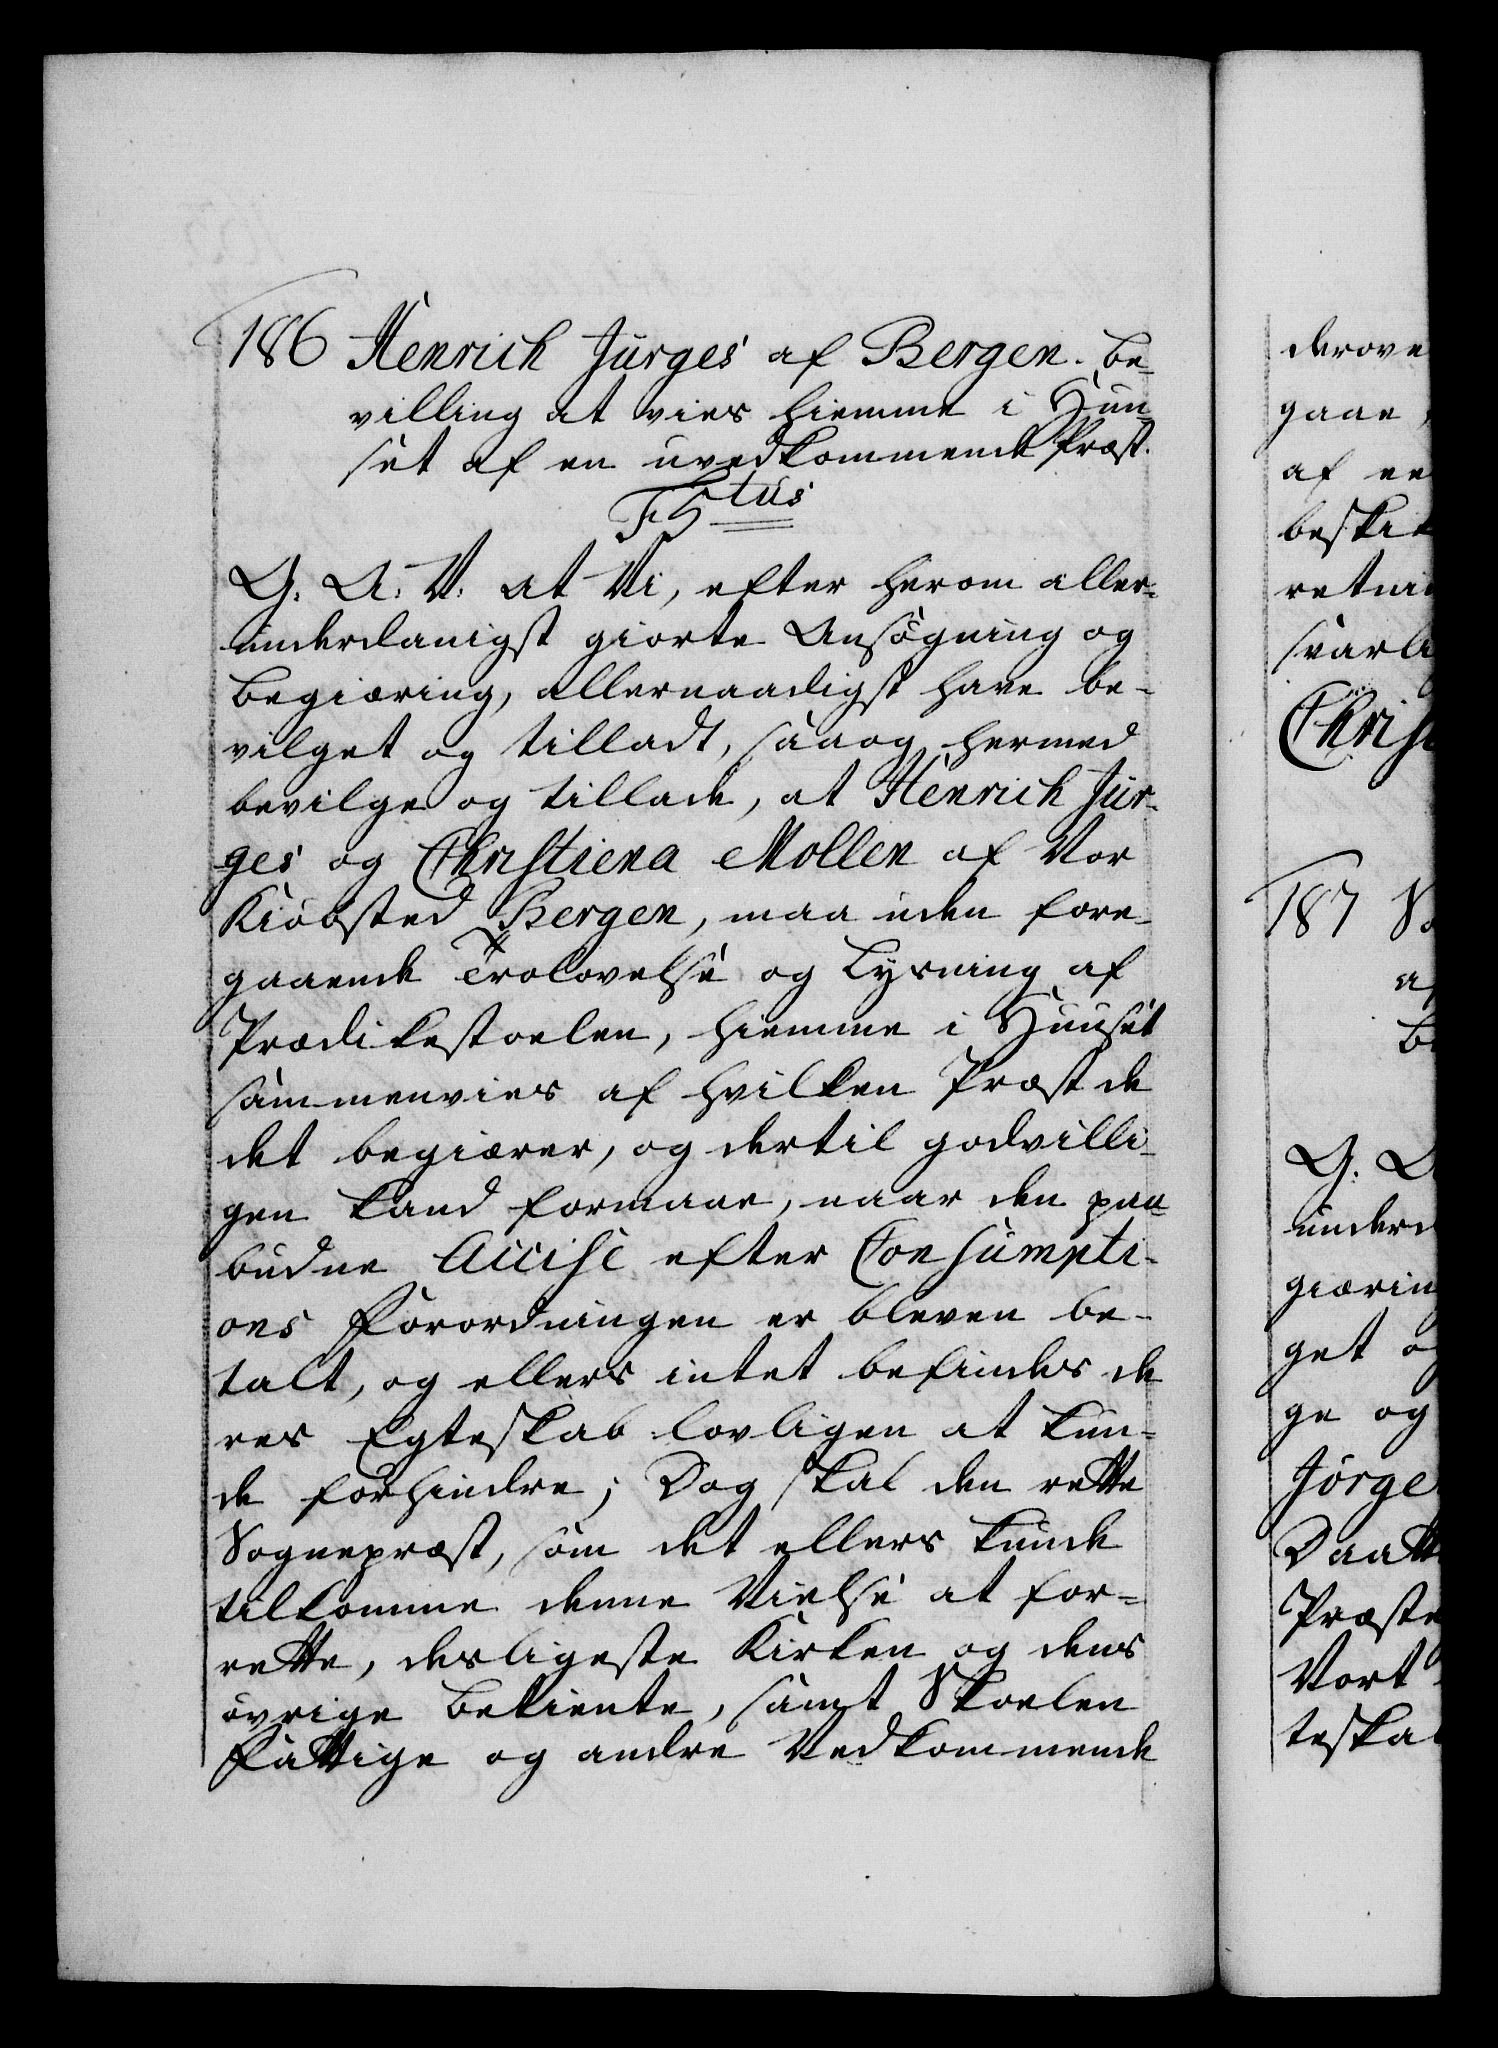 186 Henrich Jürges af Bergen. Be-
villing at vies hiemme i Huu-
set af en uvedkommende Præst.
F 5tus
G. A. V. At Vi, efter herom aller-
underdanigst giorte Ansøgning og
Begiæring, allernaadigst have be-
vilget og tilladt, saa og hermed
bevilge og tillade, at Henrich Jür-
ges og Christiena Mollen af Vor
Kiöbsted Bergen, maa uden fore-
gaaende Trolovelse og Lysning af
Prædikestoelen, hiemme i Huuset
sammenvies af hvilken Præst de
det begiærer, og dertil godvilli-
gen kand formaae, naar den paa-
budne Accise efter Consumpti-
ons Forordningen er bleven be-
talt, og ellers intet befindes de
res Egteskab lovligen at kun-
de forhindre; Dog skal den rette
Sognepræst, som det ellers kunde
tilkomme denne Vielse at for-
rette, desligeste Kirken og dens
øvrige Betiente, samt Skoelen
Fattige og andre Vedkommende
derove
gaae,
af ee
beskik
retni
svarl
Christ
187 So
af
Be
G. A
underd
giærin
get og
ge og
Jørge
Daatt
Præste
Vort
teskab